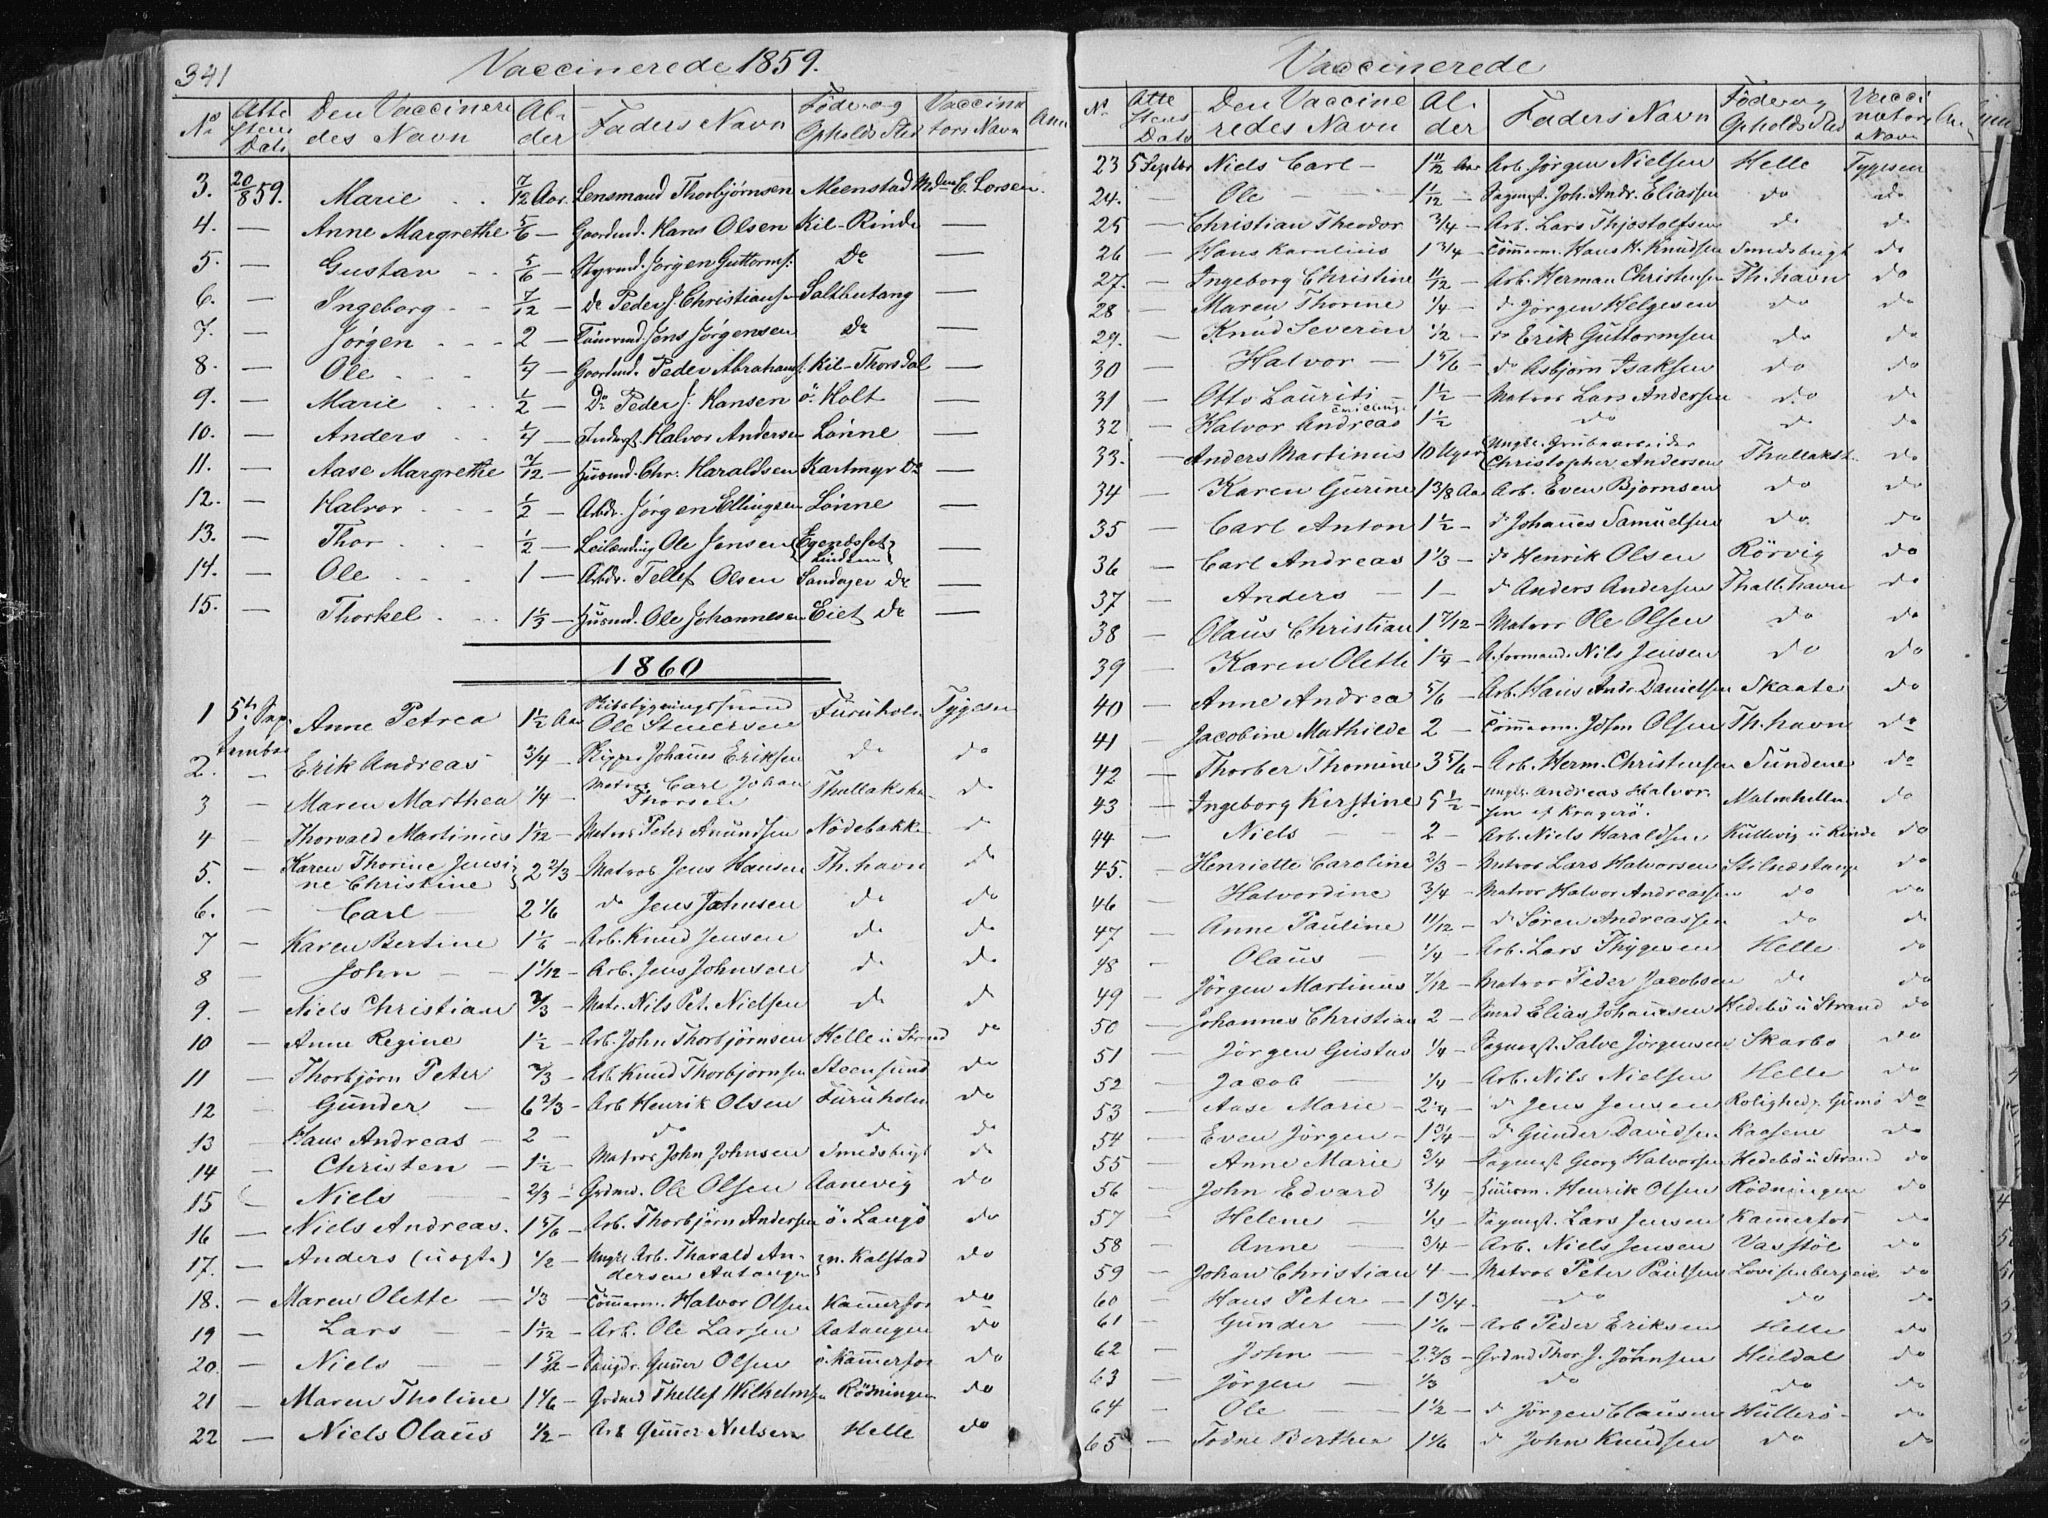 341
Vaccinerede 1859.
No Atte stens Dato Den Vaccinere des Navn Al- der Faders Navn Föde- og Opholds Sted Vaccina tors Navn Anm
3. 20/8 59. Marie 7/12 Aar. Lensmand Thorbjörnsen Meenstad C. Lorsen.
4. — Anne Margrethe 5/6 — Gaardmd. Hans Olsen Kil-Rinde —
5. — Gustav 5/6 — Styrmd. Jörgen Guttorms: Do —
6. — Ingeborg 7/12 — Do Peder J. Christians Saltbutang —
7. — Jörgen 2 — Tömrmd Jens Jörgensen Do —
8. — Ole 1/4 — Gaardmd. Peder Abrahams: Kil-Thorsdal —
9. — Marie 1/2 — Do Peder J: Hansen ö. Holt —
10. — Anders 1/4 — Inderst Halvor Andersen Lönne —
11. — Aase Margrethe 7/12 — Huusmd. Chr. Haraldsen Kartmyr Do —
12. — Halvor 1/2 — Arbdr. Jörgen Ellingsen Lönne —
13. — Thor 1/2 — Leilænding Ole Jensen Egendsset —
14. — Ole 1 — Arbdr. Tellef Olsen Sandager Do —
15. — Thorkel 1 1/3 — Huusmd. Ole Johannesen Eiet Do —
1860
1 5te Sep- tember Anne Petrea 1 1/2 Aar Skibsbygningsmand Ole Steuersen Furuholm Tygesen
2. — Erik Andreas 3/4 — Skipper Johannes Eriksen do do
3 — Maren Marthea 1/4 — Matros Carl Johan Thorsen Thullaksk. do
4 — Thorvald Martinius 1 1/12 — Matros Peter Anundsen Nödebakk. do
5. — Karen Thorine Jensi- ne Christine 2 2/3 — Matros Jens Hansen Th. havn do
6. — Carl — 2 1/6 do Jens Johnsen do do
7 — Karen Bertine 1 1/6 — Arb. Knud Jensen do do
8 — John — 1 1/12 — Arb. Jens Johnsen do do
9. — Niels Christian 2/3 — Matr. Nils Pet. Nielsen do do
10 — Anne Regine 1 1/2 — Arb. John Thorbjörnsen Helle u Strand do
11 — Thorbjörn Peter 2/3 — Arb. Knud Thorbjörnsen Steensund do
12 — Gunder — 6 2/3 — Arb Henrik Olsen Furuholm do
13 — Hans Andreas — 2 — do do do
14 — Christen — 1 1/2 — Matros John Johnsen Smedsbugt do
15 Niels — 2/3 — Grdmd. Ole Olsen Aanevig do
16 — Niels Andreas. 1 5/6 — Arb. Thorbjörn Andersen ö. Langö do
17. — Anders (uægte) 1/2 — Ungkl Arb. Tharald An- dersen Aatangen n. Kalstad do
18. — Maren Olette — 1/3 — Tömmerm. Halvor Olsen Kammerfos do
19 — Lars — 1 1/12 — Arb. Ole Larsen Aatangen do
20. — Niels — 1 5/12 — Gunner Olsen ö. Kammerfos do
21 — Maren Tholine 1 1/6 — Grdmd Thellef Wilhelmsen Rödningen do
22 — Niels Olaus 1/2 — Arb Gunner Nielsen Helle do
Vaccinerede
No Atte stens Dato Den Vaccine redes Navn Al- der Faders Navn Föde og Opholds Sted Vacci nators Navn An
23 5 Septbr Niels Carl — 1 11/12 Aar Arb. Jörgen Nielsen Helle Tygesen
24. — Ole — 1 1/12 — Sagmst. Joh. Andr. Eliassen do do
25 — Christian Theodor 3/4 — Arb. Lars Thjostolfsen do do
26 — Hans Karnilius 1 3/4 — Tömmerm. Hans H. Knudsen Smedsbugt do
27. — Ingeborg Christine 11/12 — Arb. Herman Christensen Th. havn do
28 — Maren Thorine 1/4 — do Jörgen Helgesen do do
29. — Knud Severin 1/2 — do Erik Guttormsen do do
30 — Halvor — 1 5/6 — do Asbjörn Isaksen do do
31 — Otto Lauriti 1 1/2 — Matros Lars Andersen do do
32 — Halvor Andreas 1 1/2 do do do
33. — Anders Martinius 10 Uger Ungkl. Grubearbeider Christopher Andersen Thullaksk. do
34 — Karen Gurine 1 3/8 Aar Arb. Even Bjornsen do do
35 — Carl Anton 1 1/2 — do Johannes Samuelsen do do
36 — Carl Andreas 1 1/3 — do Henrik Olsen Rörvig do
37 — Anders — 1 — do Anders Andersen Thall. havn do
38 — Olaus Christian 1 7/12 — Matros Ole Olsen do do
39 — Karen Olette 1 1/4 — Nils Jensen do do
40 — Anne Andrea 5/6 — Arb. Hans Andr. Danielsen Skaate do
41 — Jacobine Mathilde 2 — Tömmerm. Olsen Th. havn do
42 — Thorber Thomine 3 5/6 — Arb. Herm. Christensen Sundene do
43 — Ingeborg Kirstine 5 1/2 — Ungkl. Andreas Halvor- sen af Kragerö. Malmhellen do
44 — Niels — 2 — Arb. Niels Haraldsen Kullevig u Rinde do
45. — Henriette Caroline 2/3 — Matros Lars Halvorsen Stilnestange do
46 — Halvordine 3/4 — Matros Halvor Andreassen do do
47 — Anne Pauline 11/12 — do Sören Andreassen do do
48 — Olaus — 1/4 — Arb. Lars Thygesen Helle do
49 — Jörgen Martinus 7/12 — Matros Peder Jacobsen do do
50 — Johannes Christian 2 — Smed Elias Johannesen Hedebö u Strand do
51 — Jörgen Gustav 1/4 — Sagmst. Salve Jörgensen Skarbo do
52 — Jacob — 1/4 — Arb. Nils Nielsen Helle do
53 — Aase Marie — 2 1/4 — do Jens Jensen Rolighed p. Gumö do
54 — Even Jörgen — 1 3/4 — do Gunder Davidsen Kaasene do
55 — Anne Marie 3/4 — Sagmst. Georg Halvorsen Hedebö u Strand do
56 — John Edvard 3/4 — Huusm. Henrik Olsen Rödningen do
57 — Helene — 1/4 — Sagmst. Lars Jensen Kammerfos do
58 — Anne — 3/4 — Arb. Niels Jensen Vasstöl do
59 — Johan Christian 4 — Matros Peter Paulsen Lovisenberg do
60 — Hans Peter — 1 3/4. — do do do
61 — Gunder — 1 1/6 — Arb Peder Eriksen Helle do
62 — John — 2 2/3 — Grdmd Thor J. Johnsen Heildal do
63 — Jörgen — 1/3 — do do do
64 — Ole — 1 1/2 — do Jörgen Clausen Hullerö do
65 — Todne Berthea 1 1/6 — do John Knudsen do do